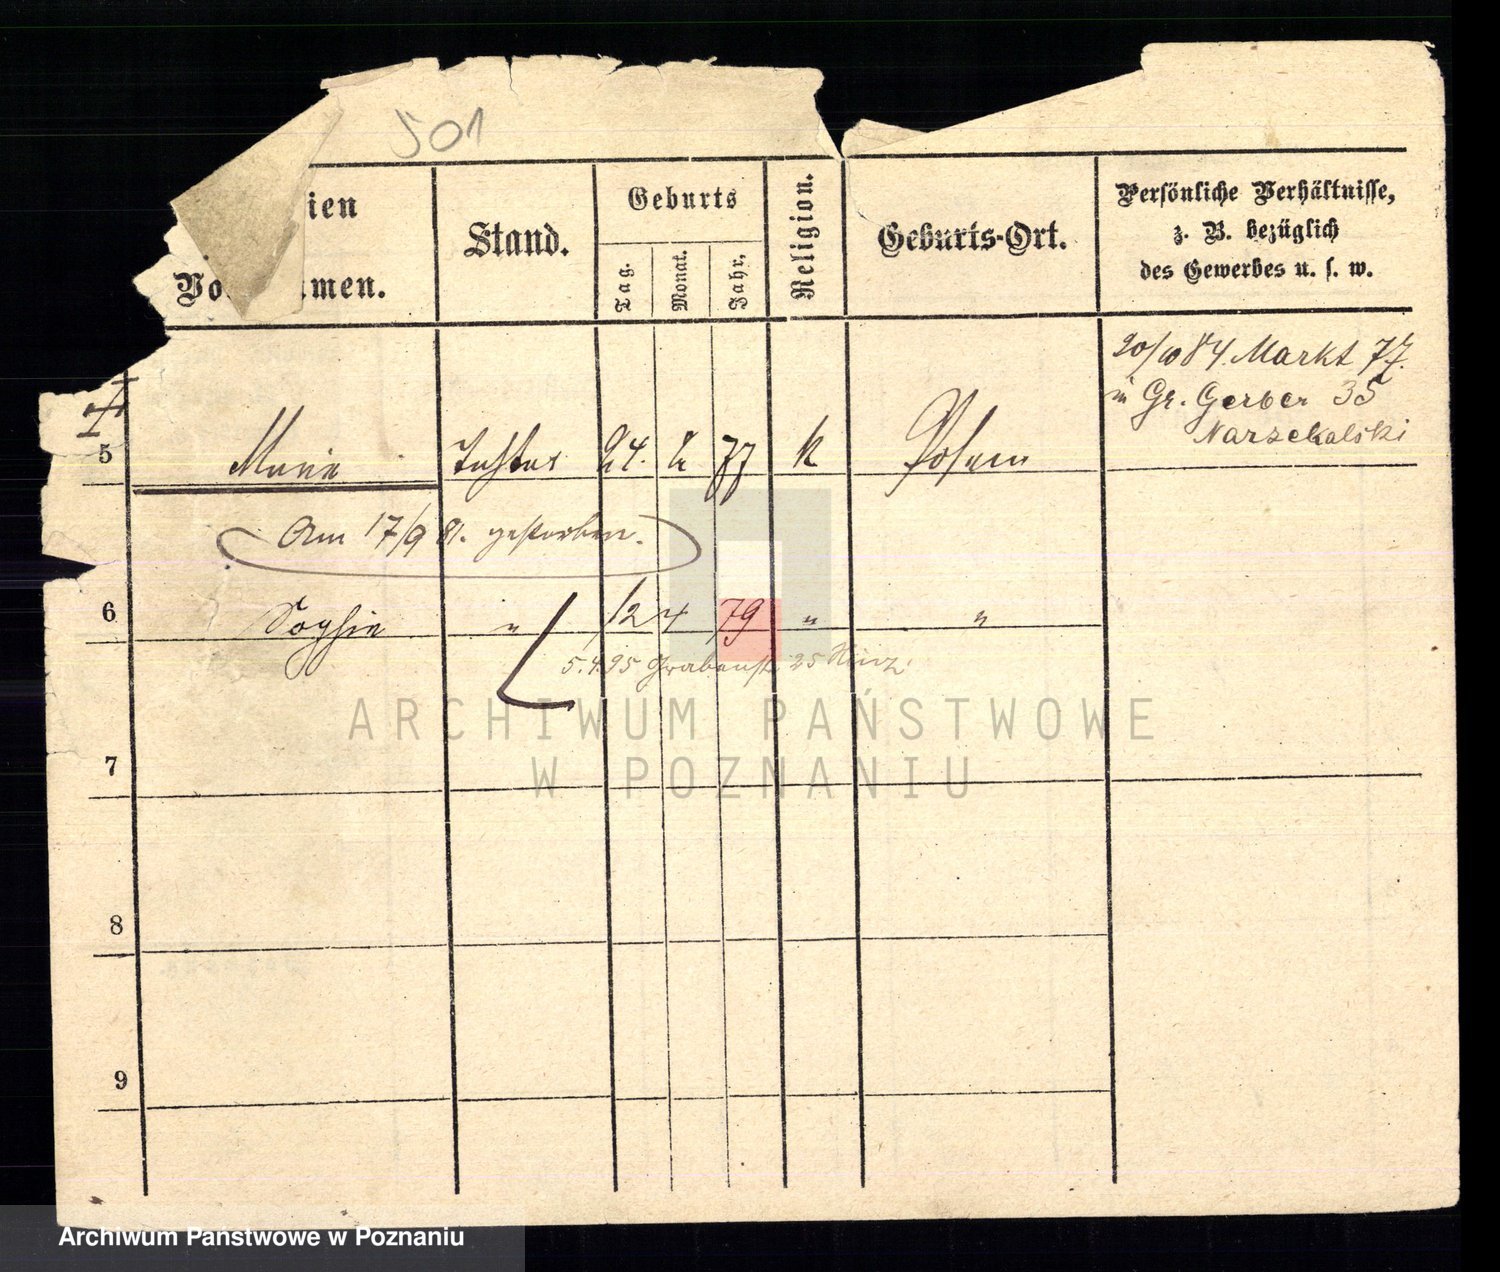 501
ien
Vo men.
Stand.
Geburts
Tag.
Monat.
Jahr.
Religion.
Geburts-Ort.
Persönliche Verhältnisse,
z. B. bezüglich
des Gewerbes u. s. w.
20/10 84. Markt 77.
in Gr. Gerber 35
Narzekalski
5 Maria Tochter 24. 2 77 k Posen
Am 17/9 81. gestorben.
6 Sophie " 12 4 79 " "
5.4.95 Grabenstr 25
7
8
9
ARCHIWUM PAŃSTWOWE
W POZNANIU
Archiwum Państwowe w Poznaniu